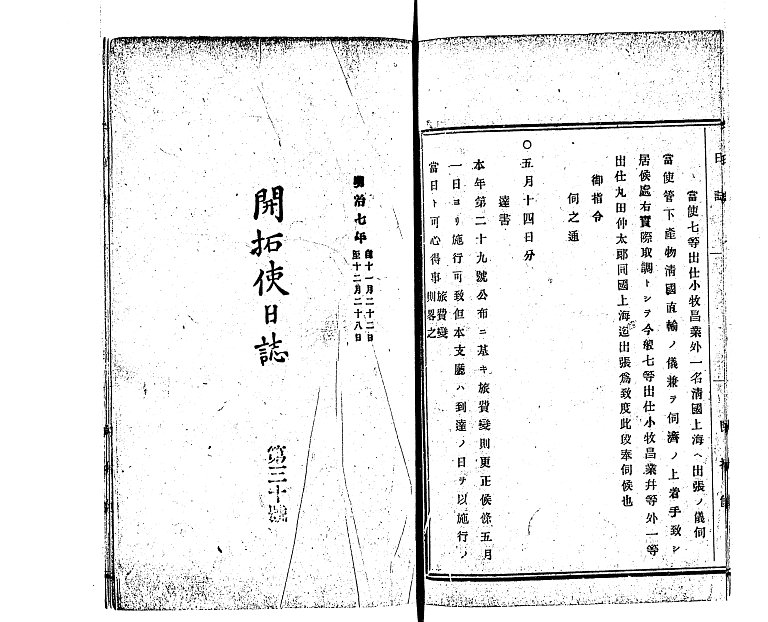 當使七等出仕小牧昌業外一名淸國上海ヘ出張ノ儀伺
當使管下產物淸國直輸ノ儀兼ヲ伺濟ノ上着手致シ
居候處右實際取調トシヲ今般七等出仕小牧昌業幷等外一等
出仕丸田仲太郞同國上海迄出張爲致度此段奉伺候也
御指令
伺之通
〇五月十四日分
達書
本年第二十九號公布ニ基キ旅費變則更正候條五月
一日ヨリ施行可致但本支廳ハ到達ノ日ヲ以施行ノ
當日ト可心得事
旅費變
則畧之
明治七年
自十一月二十二日
至十二月二十八日
開拓使日誌
第三十號
日誌